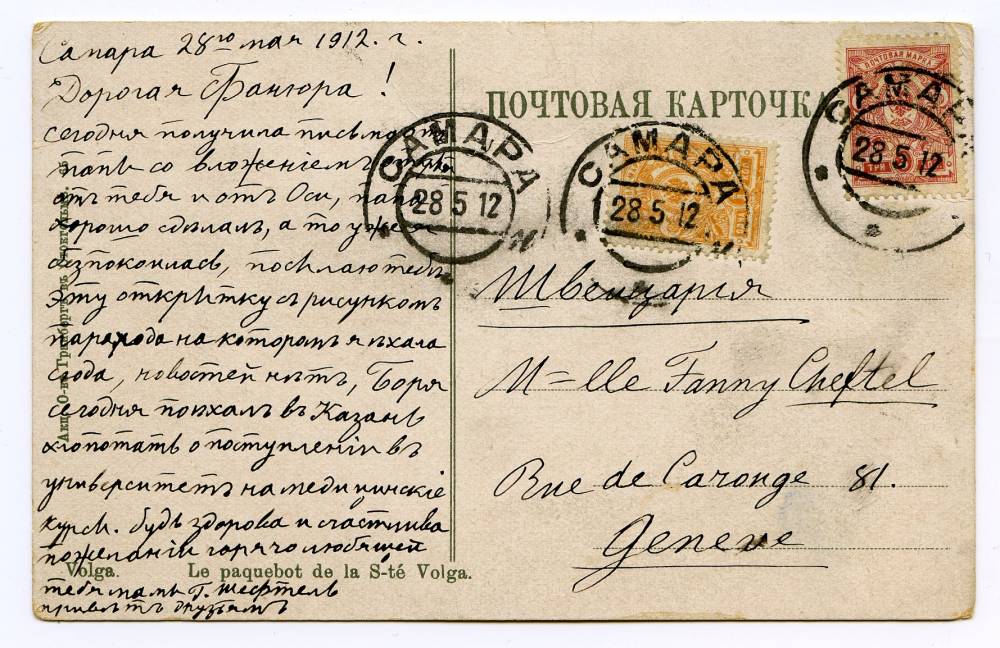 Самара 28го мая 1912. г.
Дорогая Фанюра!
сегодня получила письмо от
папы со вложеніемъ
отъ тебя и отъ Оси, папа
хорошо сдѣлалъ, а то уже я
безпокоилась, посылаю тебѣ
эту открытку съ рисункомъ
парахода на которомъ я ѣхала
сюда, новостей нѣтъ, Боря
сегодня поѣхалъ въ Казань
хлопотать о поступленіи въ
университетъ на медицинскіе
курсы. будь здорова и счастлива
пожеланіи горячо любящей
тебя мамы Г. Шефтель
привѣтъ друзьямъ
ПОЧТОВАЯ КАРТОЧКА
САМАРА
28 5 12
САМАРА
28 5 12
САМАРА
28 5 12
ПОЧТОВАЯ МАРКА
Швейцарія
M-lle Fanny Cheftel
Rue de Carouge 81.
Geneve
Volga. Le paquebot de la S-té Volga.